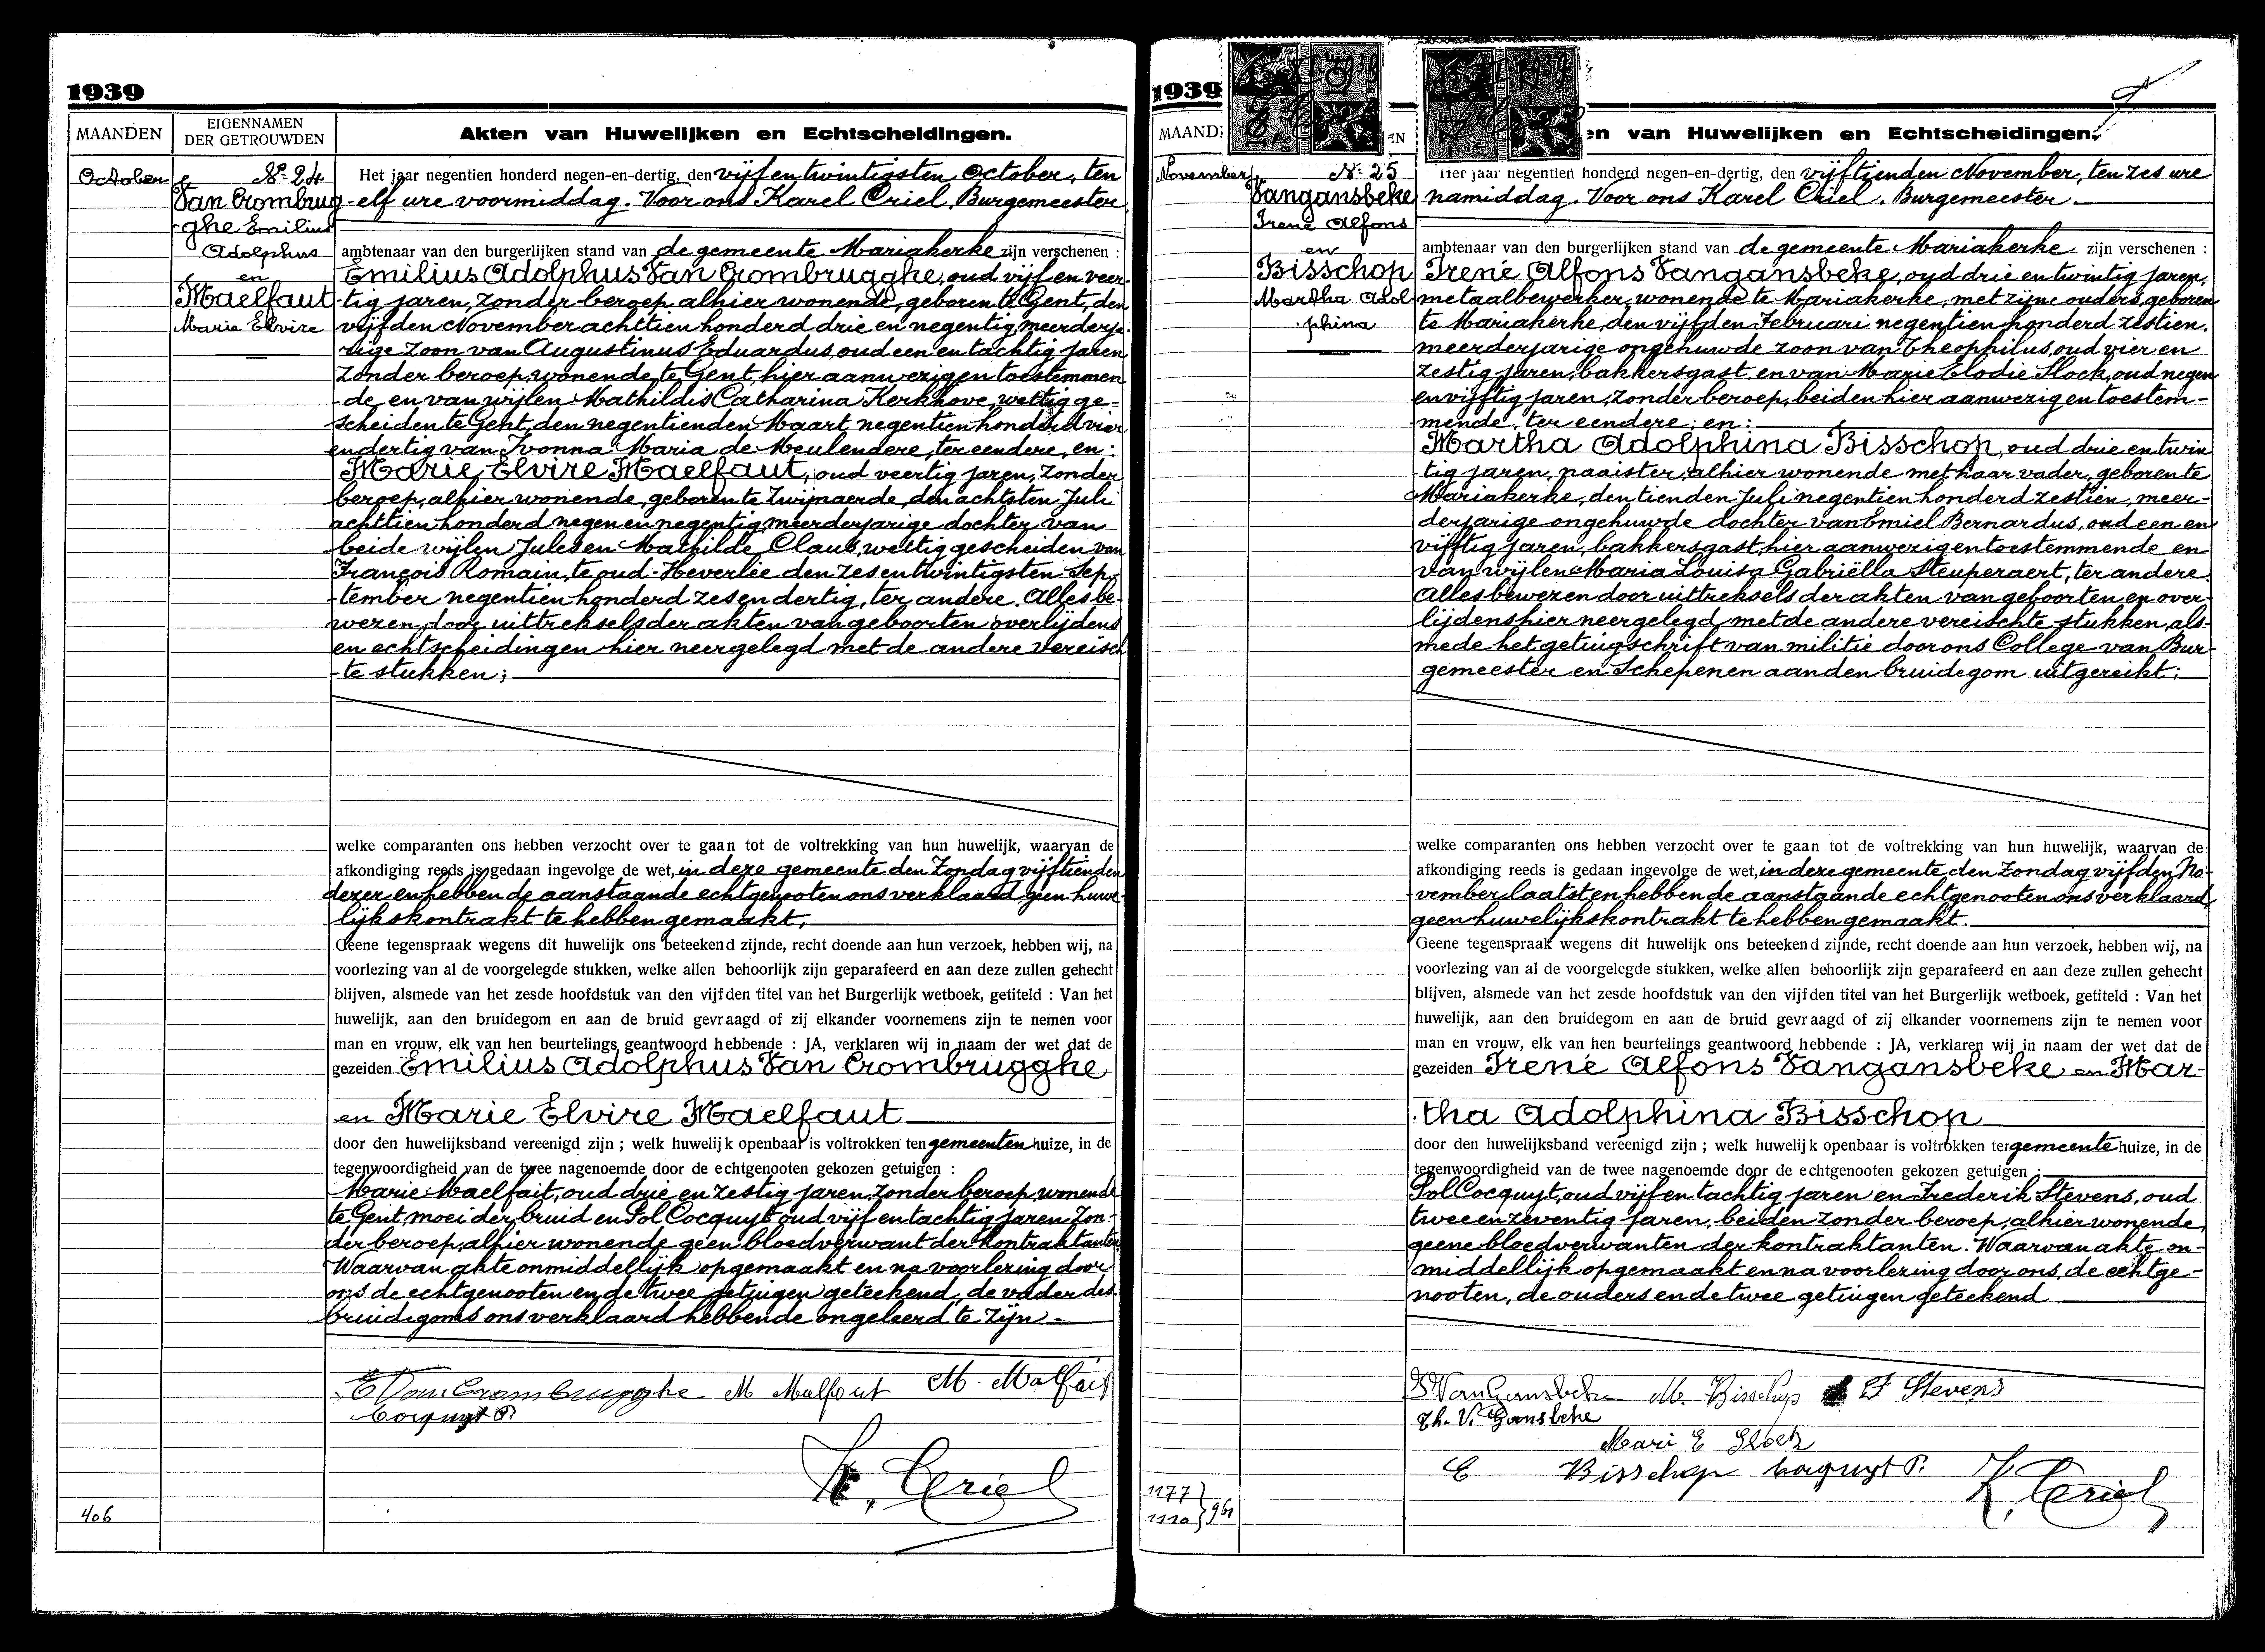 1939
MAANDEN
EIGENNAMEN
DER GETROUWDEN
Akten van Huwelijken en Echtscheidingen.
October
Nr 24
Van Crombrug
-ghe Emilius
Adolphus
en
Maelfaut
Marie Elvire
Het jaar negentien honderd negen-en-dertig, den vijf en twintigsten October, ten
-elf ure voormiddag. Voor ons Karel Criel, Burgemeester
ambtenaar van den burgerlijken stand van de gemeente Mariakerke zijn verschenen :
Emilius Adolphus Van Crombrugghe, oud vijf en veer-
-tig jaren, zonder beroep alhier wonende, geboren te Gent, den
vijfden November achttien honderd drie en negentig meerderja-
rige zoon van Augustinus Eduardus, oud een en tachtig jaren
zonder beroep, wonende te Gent, hier aanwezig en toestemmen
-de en van wijlen Mathildis Catharina Kerkhove, wettig ge-
scheiden te Gent, den negentienden Maart negentien honderd vier
en dertig van Ivonna Maria de Meulendere, ter eendere, en:
Marie Elvire Maelfaut, oud veertig jaren, zonder
beroep, alhier wonende, geboren te Zwijnaerde, den achtsten Juli
achttien honderd negen en negentig, meerderjarige dochter van
beide wijlen Jules en Mathilde Claus, wettig gescheiden van
François Romain, te oud-Heverlee den zes en twintigsten Sep-
-tember negentien honderd zes en dertig, ter andere. Alles be-
wezen door uittreksels der akten van geboorten overlijdens
en echtscheidingen hier neergelegd met de andere vereisch
-te stukken;
welke comparanten ons hebben verzocht over te gaan tot de voltrekking van hun huwelijk, waarvan de
afkondiging reeds is gedaan ingevolge de wet, in deze gemeente den Zondag vijftienden
dezer en hebben de aanstaande echtgenooten ons verklaard geen huwe-
lijkskontrakt te hebben gemaakt.
Geene tegenspraak wegens dit huwelijk ons beteekend zijnde, recht doende aan hun verzoek, hebben wij, na
voorlezing van al de voorgelegde stukken, welke allen behoorlijk zijn geparafeerd en aan deze zullen gehecht
blijven, alsmede van het zesde hoofdstuk van den vijfden titel van het Burgerlijk wetboek, getiteld : Van het
huwelijk, aan den bruidegom en aan de bruid gevraagd of zij elkander voornemens zijn te nemen voor
man en vrouw, elk van hen beurtelings geantwoord hebbende : JA, verklaren wij in naam der wet dat de
gezeiden Emilius Adolphus Van Crombrugghe
en Marie Elvire Maelfaut
door den huwelijksband vereenigd zijn ; welk huwelijk openbaar is voltrokken ten gemeenten huize, in de
tegenwoordigheid van de twee nagenoemde door de echtgenooten gekozen getuigen :
Marie Maelfait, oud drie en zestig jaren, zonder beroep, wonende
te Gent, moei der bruid en Pol Cocquyt oud vijf en tachtig jaren zon-
der beroep, alhier wonende geen bloedverwant der kontraktanten.
Waarvan akte onmiddellijk opgemaakt en na voorlezing door
ons de echtgenooten en de twee getuigen geteekend, de vader des
bruidegoms ons verklaard hebbende ongeleerd te zijn.-
E Van Crombrugghe M Malfout M. Malfait
Cocquyt P.
K. Criel
406
1939
MAAND
EN
en van Huwelijken en Echtscheidingen.
November
Nr 25
Vangansbeke
Irené Alfons
en
Bisschop
Martha Adol
-phina
Het jaar negentien honderd negen-en-dertig, den vijftienden November, ten zes ure
namiddag. Voor ons Karel Criel. Burgemeester.
ambtenaar van den burgerlijken stand van de gemeente Mariakerke zijn verschenen :
Irené Alfons Vangansbeke, oud drie en twintig jaren,
metaalbewerker, wonende te Mariakerke, met zijne ouders, geboren
te Mariakerke, den vijfden Februari negentien honderd zestien,
meerderjarige ongehuwde zoon van Theophilus, oud vier en
zestig jaren, bakkersgast, en van Marie Elodie Slock, oud negen
en vijftig jaren, zonder beroep, beiden hier aanwezig en toestem-
mende, ter eendere; en:
Martha Adolphina Bisschop, oud drie en twin
-tig jaren, naaister, alhier wonende met haar vader, geboren te
Mariakerke, den tienden Juli negentien honderd zestien, meer-
derjarige ongehuwde dochter van Emiel Bernardus, oud een en
vijftig jaren, bakkersgast, hier aanwezig en toestemmende en
van wijlen Maria Louisa Gabriëlla Steuperaert, ter andere.
Alles bewezen door uittreksels der akten van geboorten en over-
lijdens hier neergelegd met de andere vereischte stukken, als-
mede het getuigschrift van militie door ons College van Bur-
gemeester en Schepenen aan den bruidegom uitgereikt;
welke comparanten ons hebben verzocht over te gaan tot de voltrekking van hun huwelijk, waarvan de
afkondiging reeds is gedaan ingevolge de wet, in deze gemeente, den Zondag vijfden No-
-vember laatst en hebben de aanstaande echtgenooten ons verklaard
geen huwelijkskontrakt te hebben gemaakt.
Geene tegenspraak wegens dit huwelijk ons beteekend zijnde, recht doende aan hun verzoek, hebben wij, na
voorlezing van al de voorgelegde stukken, welke allen behoorlijk zijn geparafeerd en aan deze zullen gehecht
blijven, alsmede van het zesde hoofdstuk van den vijfden titel van het Burgerlijk wetboek, getiteld : Van het
huwelijk, aan den bruidegom en aan de bruid gevraagd of zij elkander voornemens zijn te nemen voor
man en vrouw, elk van hen beurtelings geantwoord hebbende : JA, verklaren wij in naam der wet dat de
gezeiden Irené Alfons Vangansbeke en Mar-
-tha Adolphina Bisschop
door den huwelijksband vereenigd zijn ; welk huwelijk openbaar is voltrokken ter gemeente huize, in de
tegenwoordigheid van de twee nagenoemde door de echtgenooten gekozen getuigen :
Pol Cocquyt, oud vijf en tachtig jaren en Frederik Stevens, oud
twee en zeventig jaren, beiden zonder beroep, alhier wonende,
geene bloedverwanten der kontraktanten. Waarvan akte on-
middellijk opgemaakt en na voorlezing door ons, de echtge-
nooten, de ouders en de twee getuigen geteekend
I VanGansbeke M. Bisschop F Stevens
Th. V. Gansbeke
Mari E Slock
E Bisschop Cocquyt P.
K. Criel
1177
1110 } 961